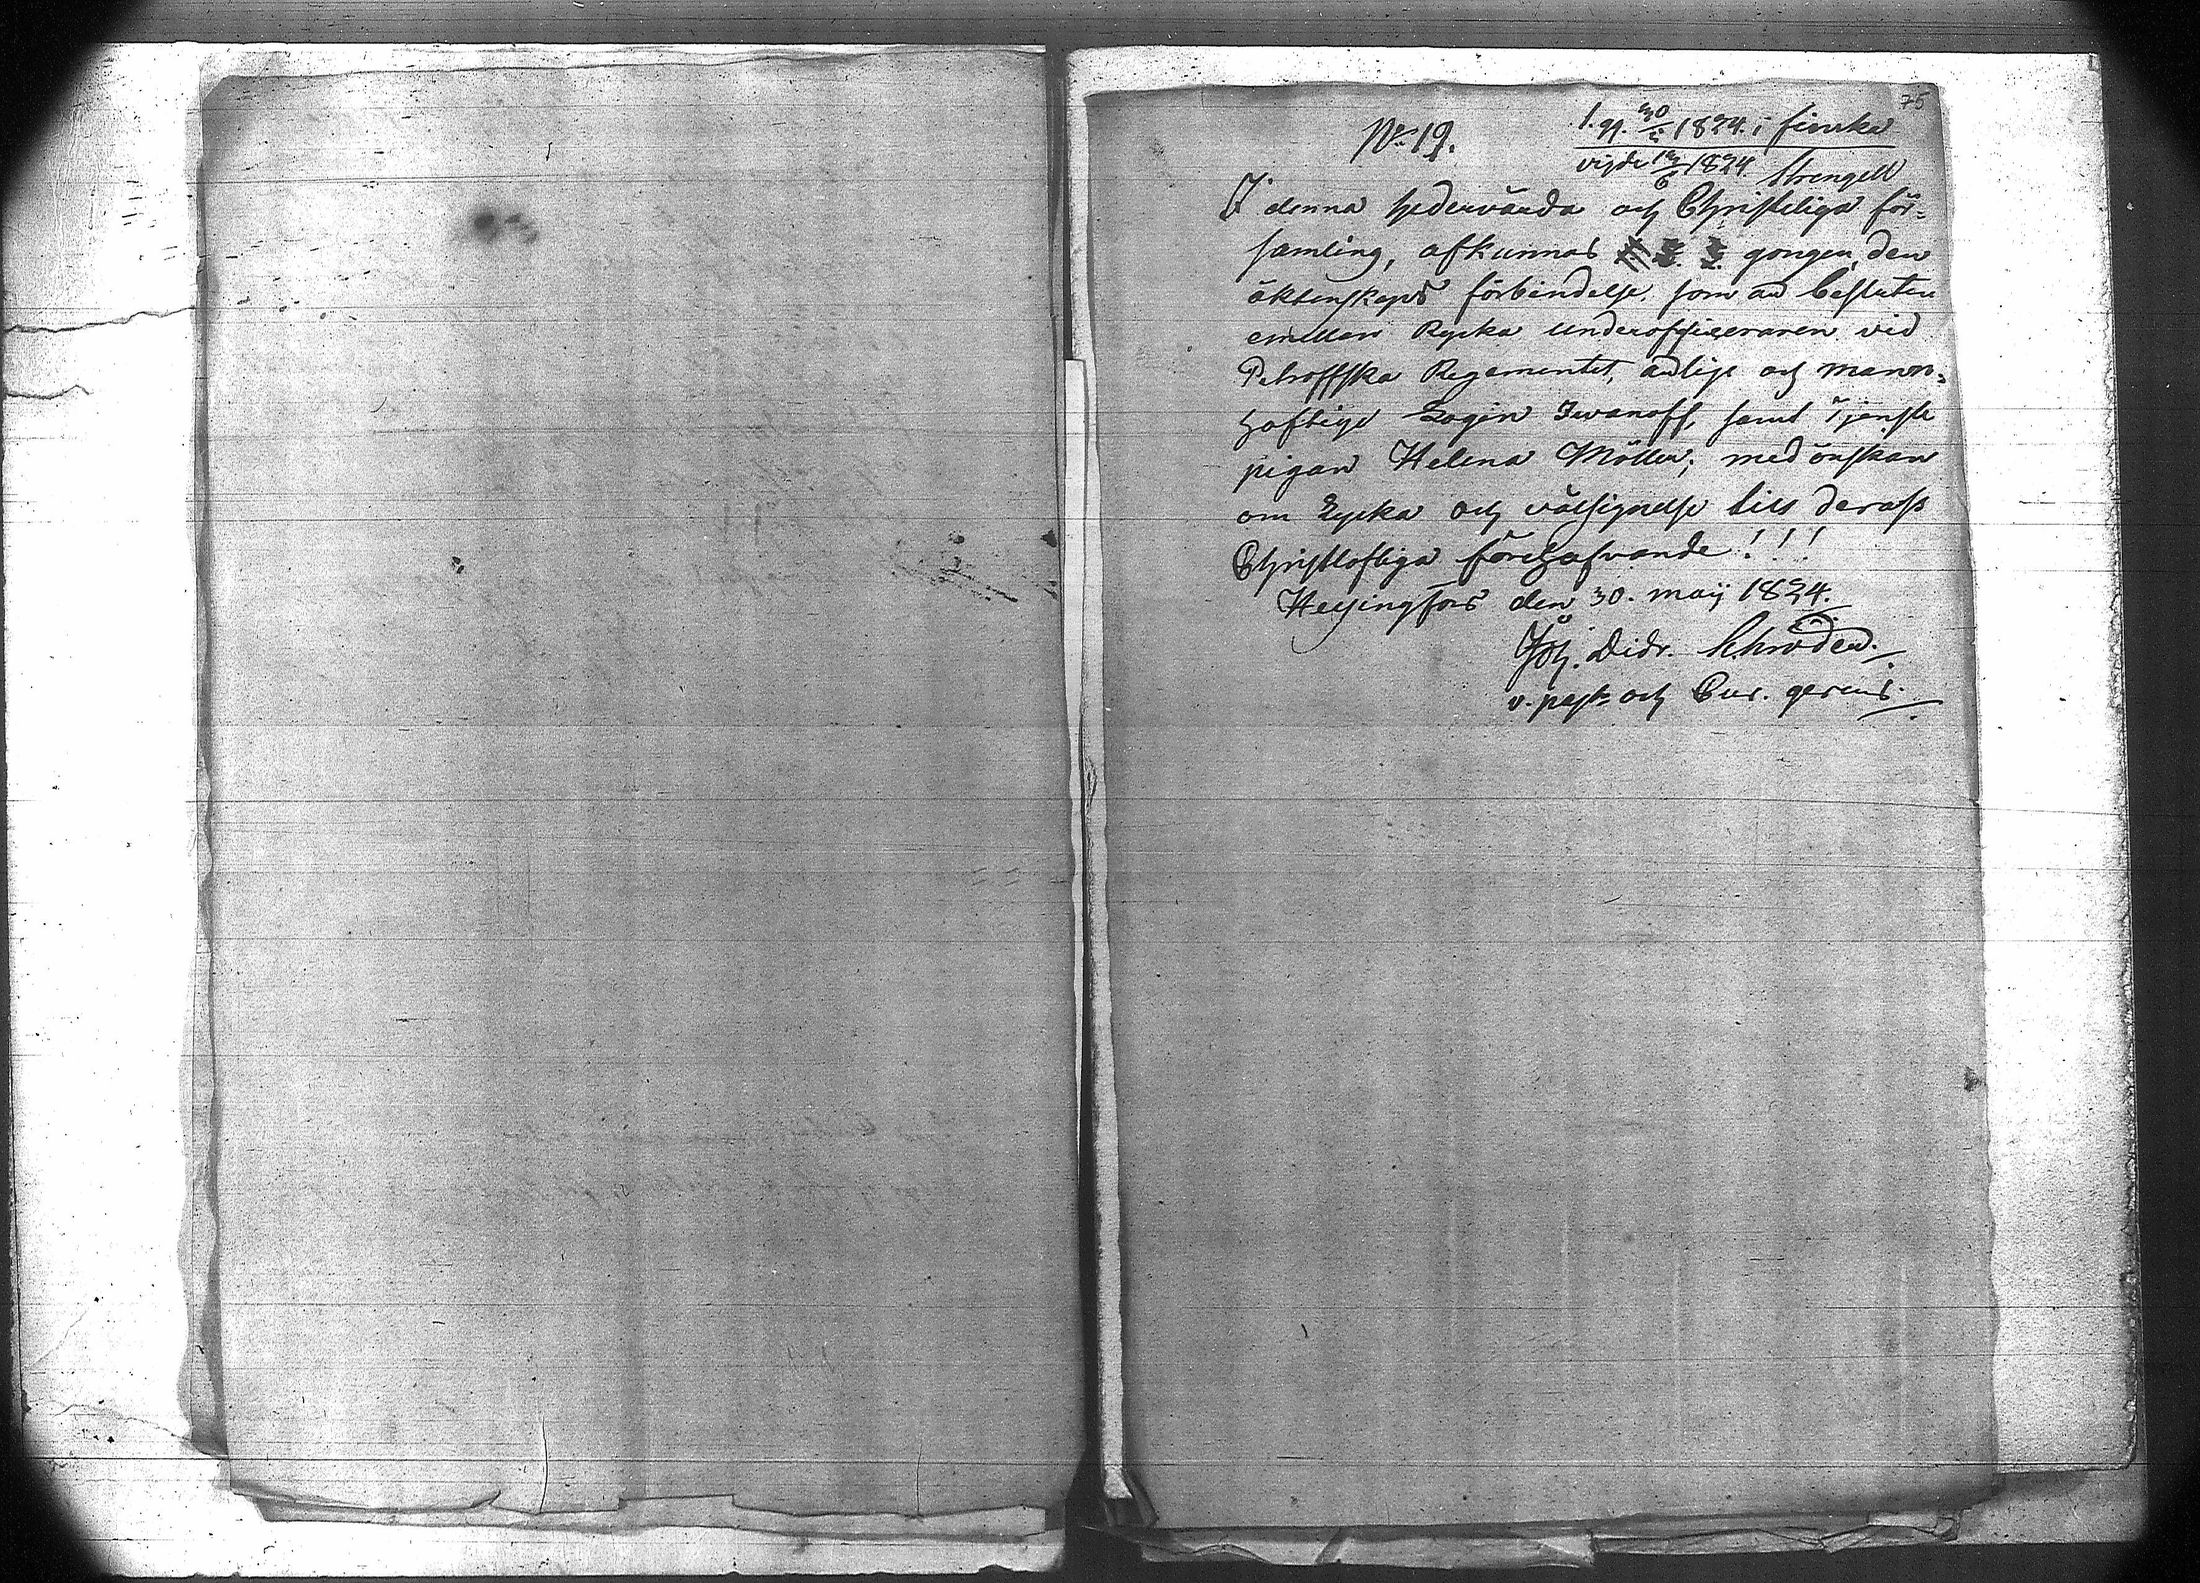 75
No 19.
1. gg. 30/5 1824. i finska
vigde 13/6 1824. Strengell
I denna hedervärda och Christeliga för-
samling, afkunnas gongen, den
äktenskaps förbindelse, som är besluten
emellan Ryska underofficeraren vid
Petroffska Regementet, ädlige och mann-
haftige Login Iwanoff, samt Tjenste
pigan Helena Möller; med önskan
om Lycka och välsignelse till derass
Christlofliga förehafvande!!!
Helsingfors den 30. maij 1824.
Joh. Didr. Schröder.
v. past. och Cur. gerens.